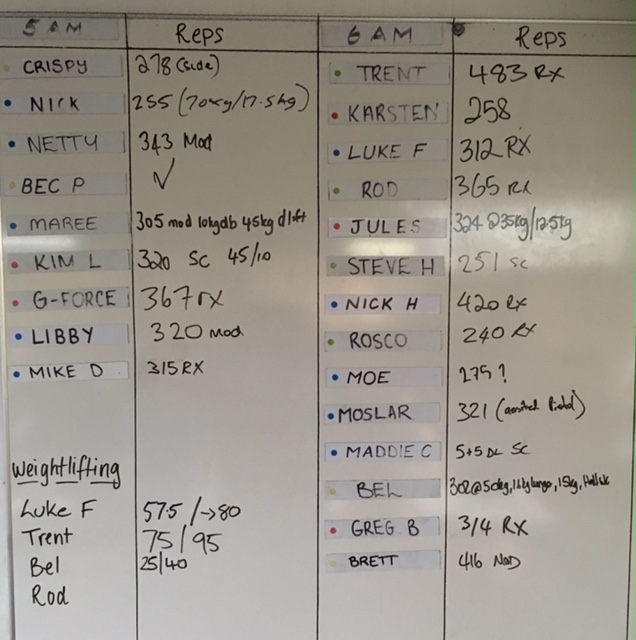 5 AM Reps
CRISPY 278 (side)
NICK 255 (70kg/17.5kg)
NETTY 343 Mod
BEC P ✓
MAREE 305 mod 10kgdb 45kg dlift
KIM L 320 SC 45/10
G-FORCE 367 rx
LIBBY 320 mod
MIKE D 315 RX
Weightlifting
Luke F 57.5 /→80
Trent 75/95
Bel 25/40
Rod
6 AM Reps
TRENT 483 RX
KARSTEN 258
LUKE F 312 RX
ROD 365 RX
JULES 324 @35kg/12.5kg
STEVE H 251 SC
NICK H 420 RX
ROSCO 240 RX
MOE 275?
MOSLAR 321
MADDIE C 5+5 SC
BEL 302@50kg, lunge, 15kg,
GREG B 314 RX
BRETT 416 MOD